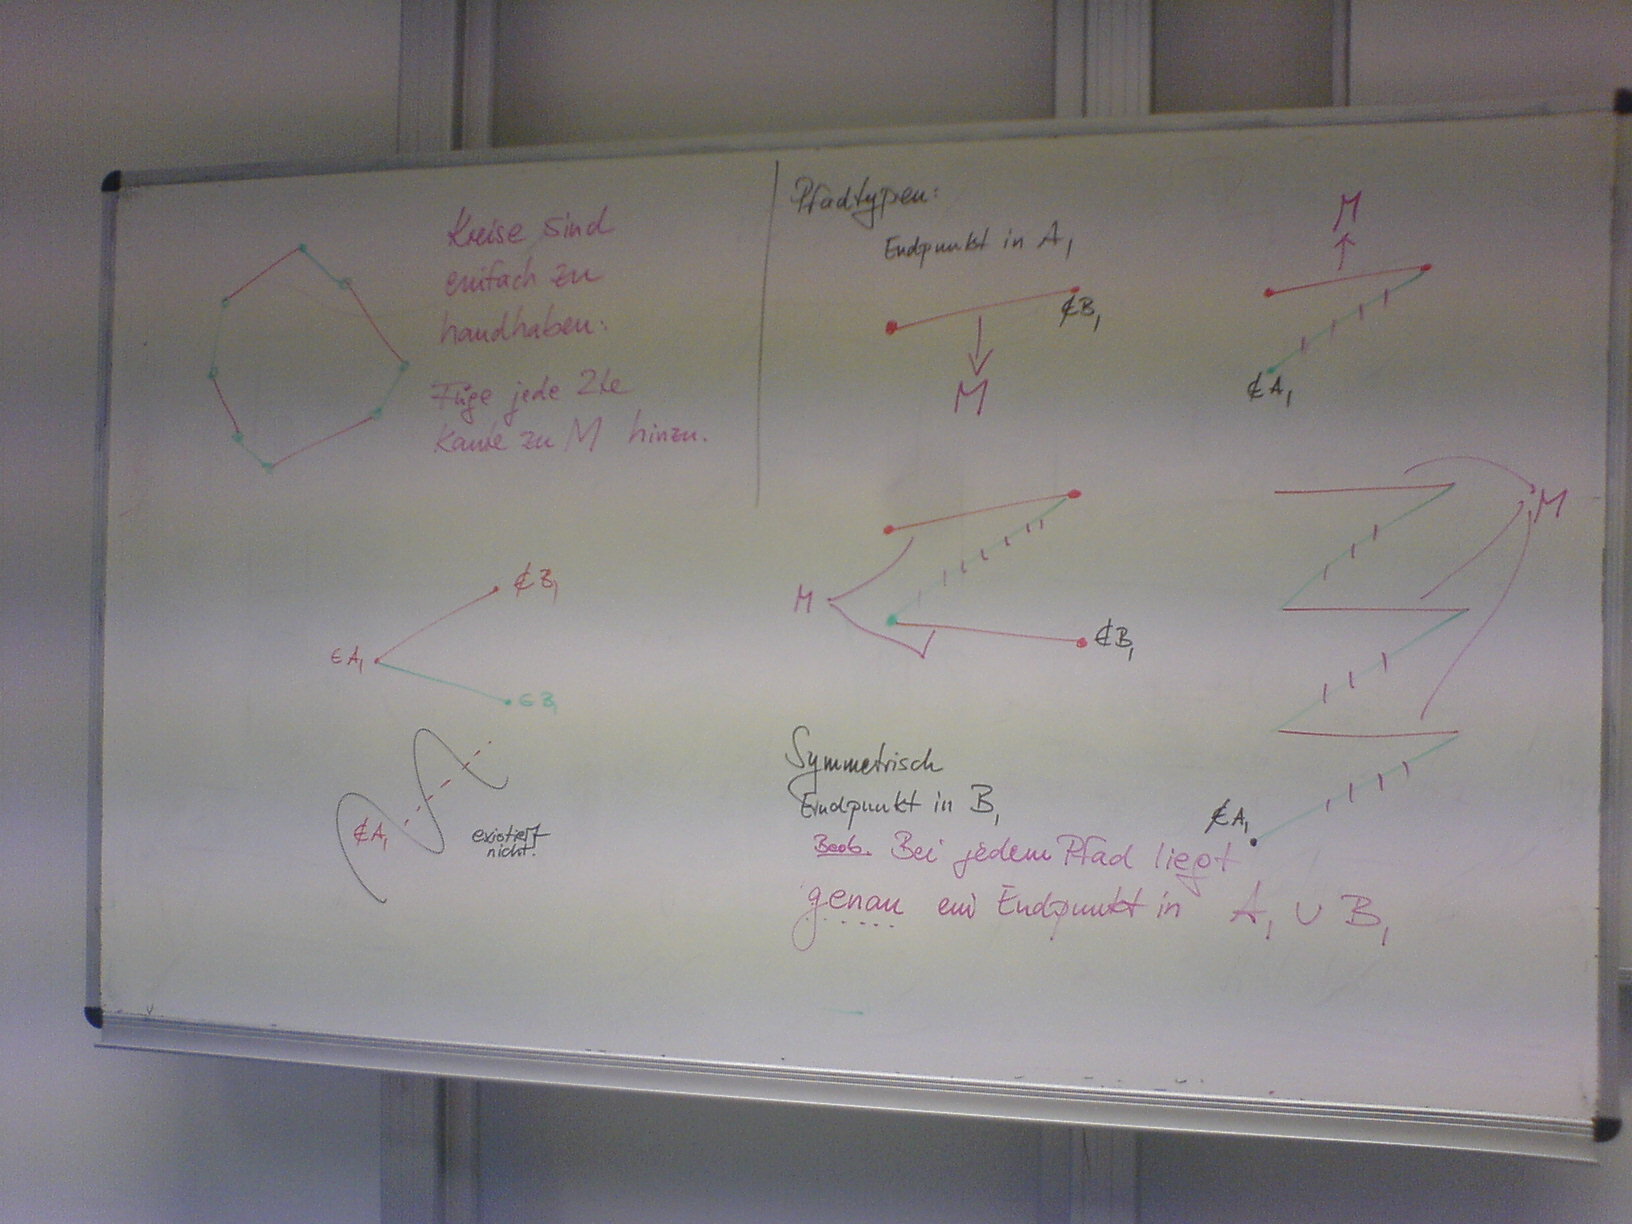 Kreise sind
einfach zu
handhaben:
Füge jede 2te
Kante zu M hinzu.
∉B₁
∈A₁
∈B₁
∉A₁
existiert
nicht!
Pfadtypen:
Endpunkt in A₁
∉B₁
M
M
∉A₁
M
∉B₁
M
∉A₁
Symmetrisch
Endpunkt in B₁
Beob. Bei jedem Pfad liegt
genau ein Endpunkt in A₁ ∪ B₁